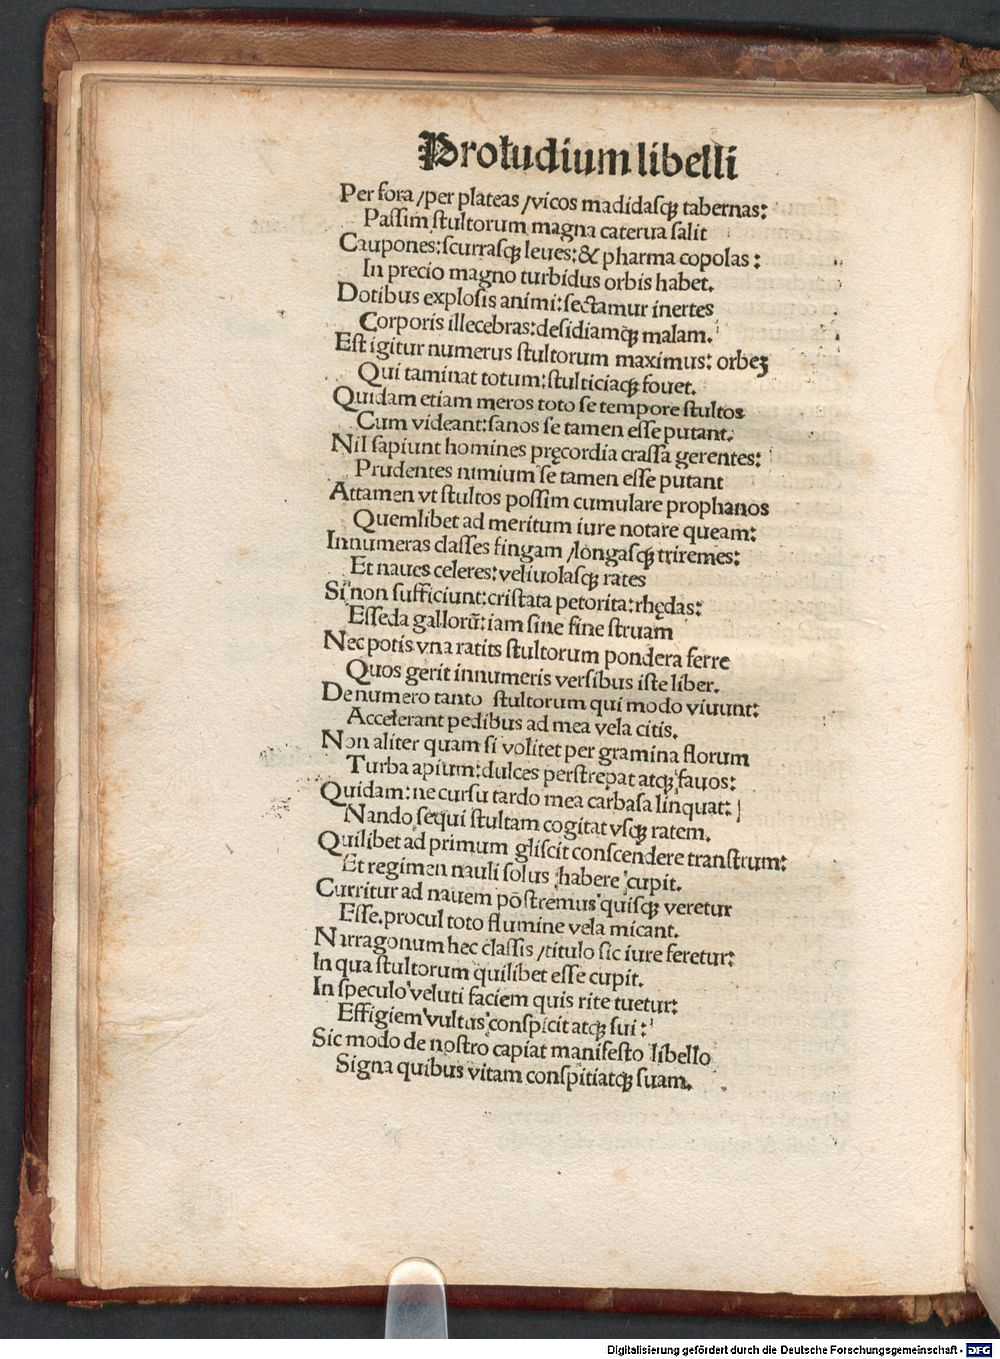 Proludium libelli
Per fora /per plateas /vicos madidasqꝫ tabernas:
Paſſim ſtultorum magna caterua ſalit
Caupones: ſcurraſqꝫ leues: & pharma copolas :
In precio magno turbidus orbis habet.
Dotibus exploſis animi: ſectamur inertes
Corporis illecebras: deſidiamqꝫ malam.
Eſt igitur numerus ſtultorum maximus: orbeꝫ
Qui taminat totum: ſtulticiaqꝫ fouet.
Quidam etiam meros toto ſe tempore ſtultos
Cum videant: ſanos ſe tamen eſſe putant.
Nil ſapiunt homines pręcordia craſſa gerentes:
Prudentes nimium ſe tamen eſſe putant
Attamen vt ſtultos poſſim cumulare prophanos
Quemlibet ad meritum iure notare queam:
Innumeras claſſes fingam /longaſqꝫ triremes:
Et naues celeres: veliuolaſqꝫ rates
Si non ſufficiunt: criſtata petorita: rhędas:
Eſſeda gallorū: iam ſine fine ſtruam
Nec potis vna ratits ſtultorum pondera ferre
Quos gerit innumeris verſibus iſte liber.
De numero tanto ſtultorum qui modo viuunt:
Accelerant pedibus ad mea vela citis.
Non aliter quam ſi volitet per gramina florum
Turba apium: dulces perſtrepat atqꝫ fauos:
Quidam: ne curſu tardo mea carbaſa linquat:
Nando ſequi ſtultam cogitat vſqꝫ ratem.
Quilibet ad primum gliſcit conſcendere tranſtrum:
Et regimen nauli ſolus habere cupit.
Curritur ad nauem pōſtremus quiſqꝫ veretur
Eſſe. procul toto flumine vela micant.
Narragonum hec claſſis /titulo ſic iure feretur:
In qua ſtultorum quilibet eſſe cupit.
In ſpeculo veluti faciem quis rite tuetur:
Effigiem vultus conſpicit atqꝫ ſui :
Sic modo de noſtro capiat manifeſto libello
Signa quibus vitam conſpitiatqꝫ ſuam.
Digitalisierung gefördert durch die Deutsche Forschungsgemeinschaft - DFG